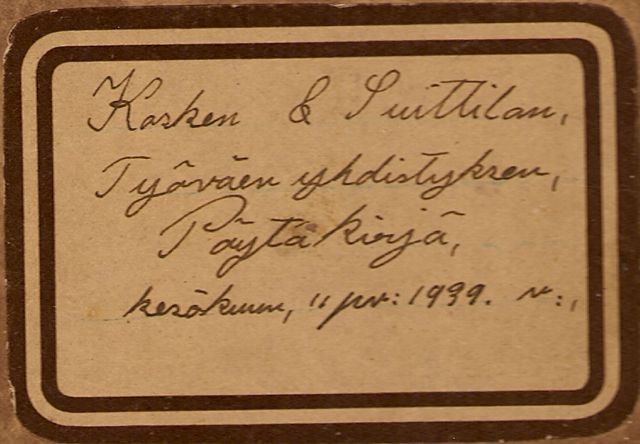 Kosken & Suittilan,
Työväen yhdistyksen,
Pöytäkirjä,
kesäkuun, 11 pv: 1939. v:,